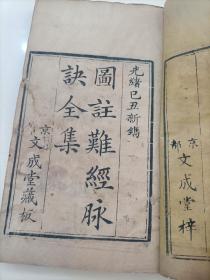 光緒己丑新鐫
圖註難經脉
訣全集
京都
文成堂藏板
京都
文成堂梓